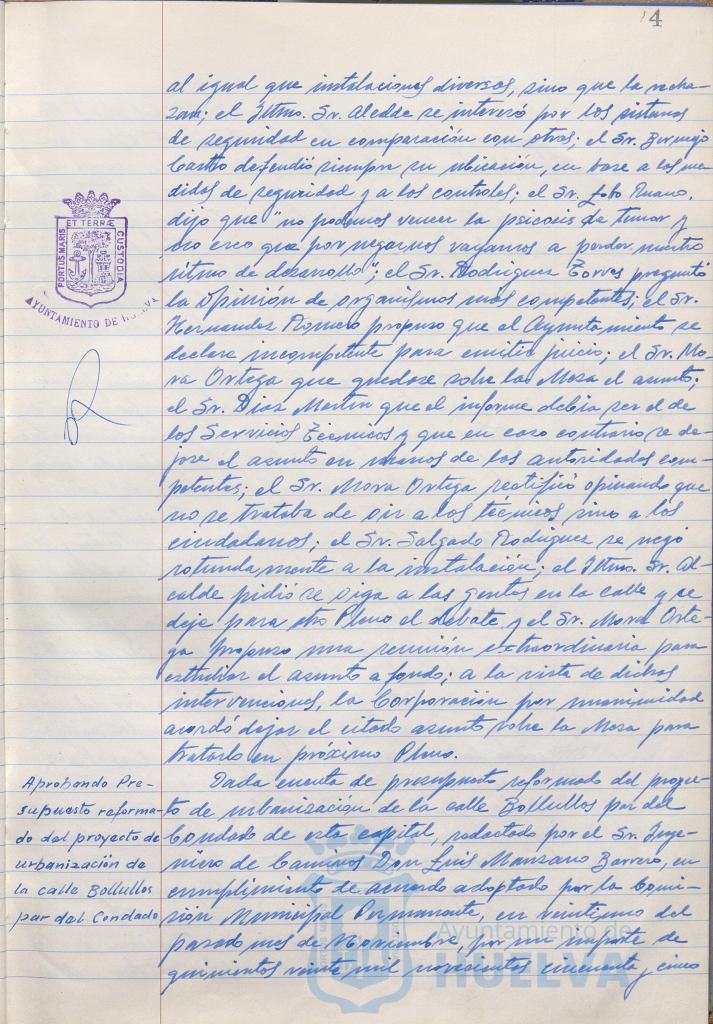 4
al igual que instalaciones diversas, sino que la recha-
zara; el Iltmo. Sr. Alcalde se interesó por los sistemas
de seguridad en comparación con otras; el Sr. Bermejo
Castro defendió siempre su ubicación, en base a las me-
didas de seguridad y a los controles; el Sr. Lobo Ruano,
dijo que "no podemos vencer la psicosis de temor y
no creo que por negarnos vayamos a perder nuestro
ritmo de desarrollo"; el Sr. Rodriguez Torres preguntó
la opinión de organismos mas competentes; el Sr.
Hernandez Romero propuso que el Ayuntamiento se
declare incompetente para emitir juicio; el Sr. Mo-
ra Ortega que quedase sobre la Mesa el asunto;
el Sr. Diaz Martin que el informe debia ser el de
los Servicios Técnicos y que en caso contrario se de-
jase el asunto en manos de las autoridades com-
petentes; el Sr. Mora Ortega rectificó opinando que
no se trataba de oir a los técnicos sino a los
ciudadanos; el Sr. Salgado Rodriguez se negó
rotundamente a la instalación; el Iltmo. Sr. Al-
calde pidió se oiga a las gentes en la calle y se
deje para otro Pleno el debate y el Sr. Mora Orte-
ga propuso una reunión extraordinaria para
estudiar el asunto a fondo; a la vista de dichas
intervenciones, la Corporación por unanimidad
acordó dejar el citado asunto sobre la Mesa para
tratarlo en próximo Pleno.
Dada cuenta de presupuesto reformado del proyec-
to de urbanización de la calle Bollullos par del
Condado de esta capital, redactado por el Sr. Inge-
niero de Caminos Don Luis Manzano Barrero, en
cumplimiento de acuerdo adoptado por la Comi-
sión Municipal Permanente, en veintiuno del
pasado mes de Noviembre, por un importe de
quinientas veinte mil novecientas cincuenta y cinco
Aprobando Pre-
supuesto reforma-
do del proyecto de
urbanización de
la calle Bollullos
par del Condado
PORTUS MARIS ET TERRÆ CUSTODIA
AYUNTAMIENTO DE HUELVA
Ayuntamiento de
HUELVA